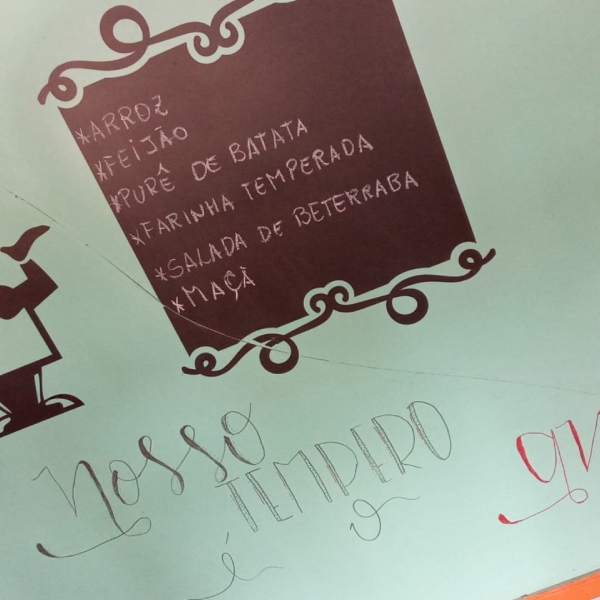 *ARROZ
*FEIJÃO
*PURÊ DE BATATA
*FARINHA TEMPERADA
*SALADA DE BETERRABA
*MAÇÃ
Nosso
TEMPERO
é o